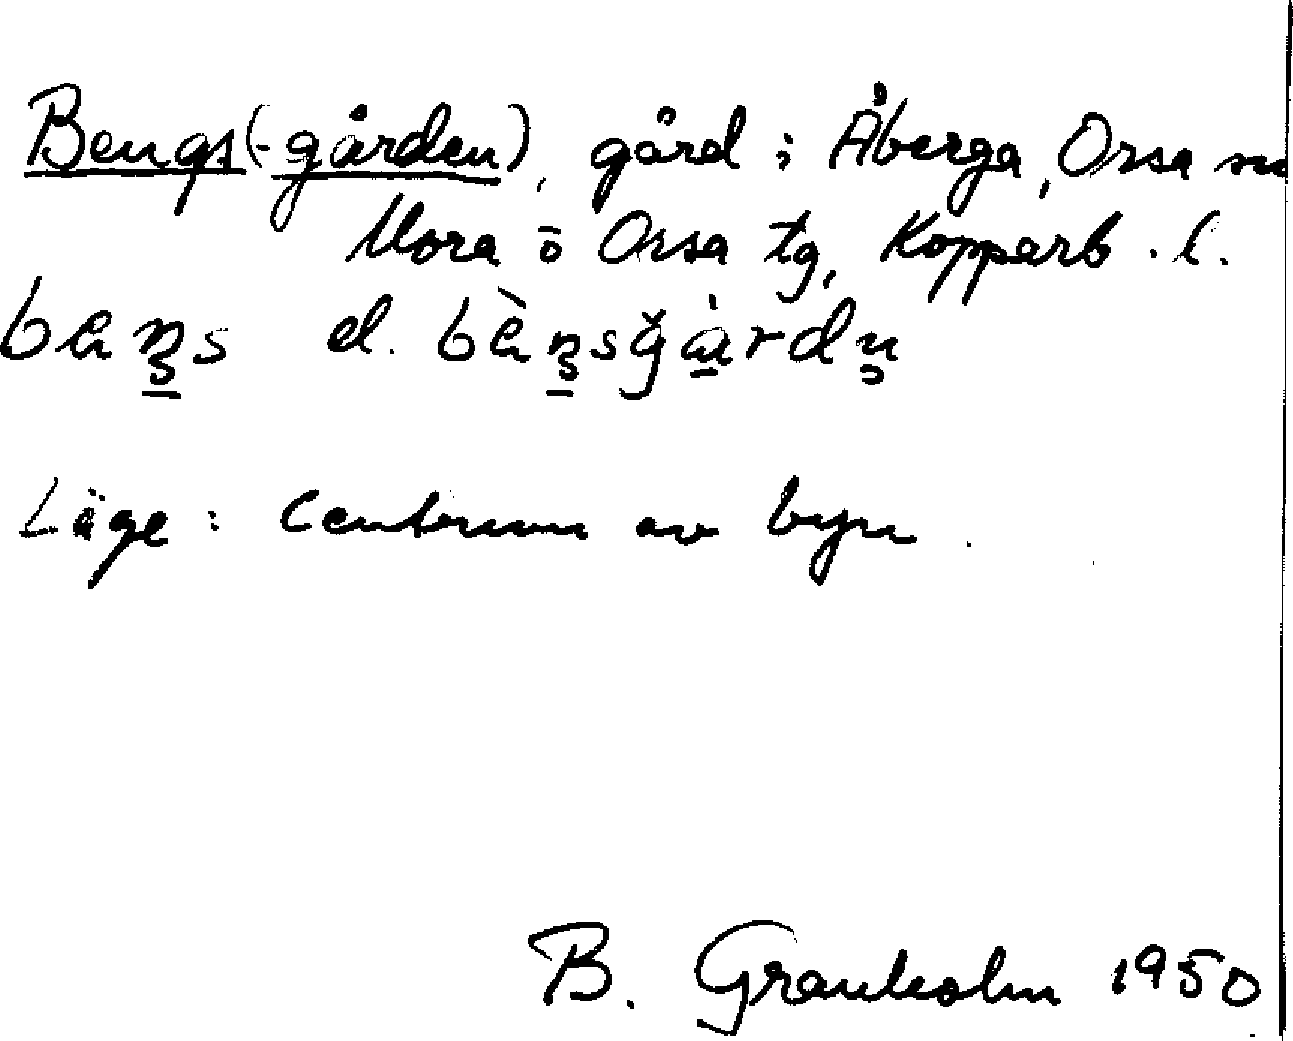 Bengs(-gården), gård i Åberga, Orsa sn
Mora o Orsa tg, Kopparb. l.
Läge: Centrum av byn.
B. Granholm 1950